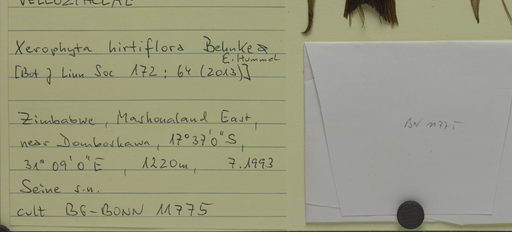 VELLOZIACEAE
Xerophyta hirtiflora Behnke &
E. Hummel
[Bot J Linn Soc 172 : 64 (2013)]
Zimbabwe, Mashonaland East,
near Domboshawa, 17°37'0"S,
31°09'0"E , 1220m, 7.1993
Seine s.n.
cult BG-BONN 11775
BN 11775